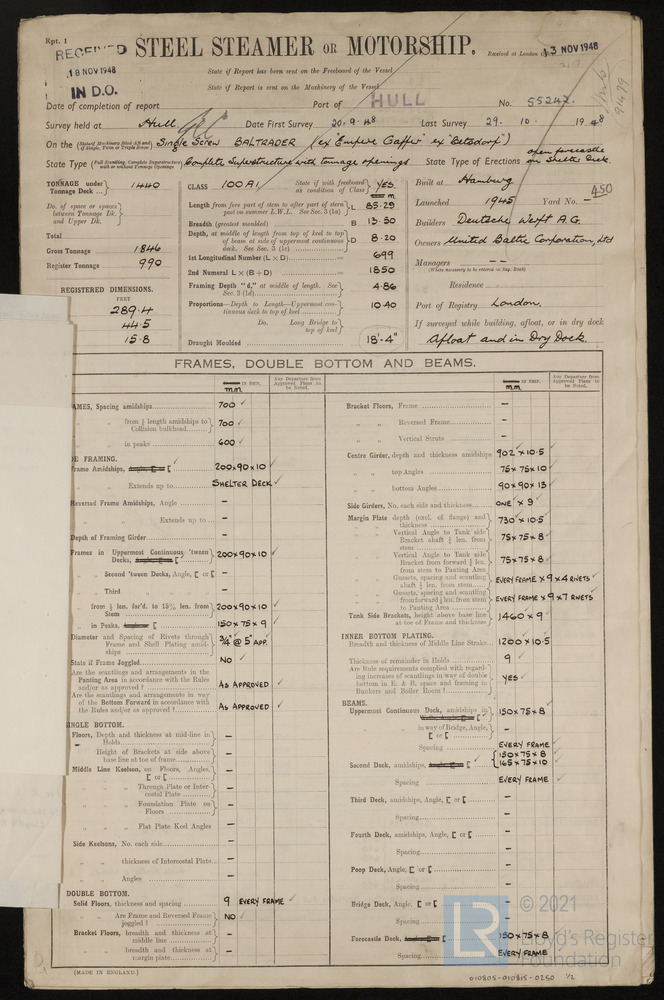 Rpt. 1
RECEIVED
18 NOV 1948
IN D.O.
STEEL STEAMER OR MOTORSHIP.
Received at London
13 NOV 1948
State if Report has been sent on the Freeboard of the Vessel
State if Report is sent on the Machinery of the Vessel
Date of completion of report
Port of HULL
No. 55242
Survey held at Hull Date First Survey 20.9.48 Last Survey 29. 10. 1948
On the Single Screw BALTRADER (ex "Empire Gaffer" ex "Betzdorf")
State Type (Full Scantling, Complete Superstructure with or without Tonnage Openings) Complete Superstructure with tonnage openings State Type of Erections open forecastle on Shelter Deck.
TONNAGE under Tonnage Deck ... 1440
Do. of space or spaces between Tonnage Dk. and Upper Dk.
Total
Gross Tonnage 1846
Register Tonnage 990
REGISTERED DIMENSIONS.
FEET
289.4
44.5
15.8
CLASS 100A1 State if with freeboard as condition of Class YES
Length from fore part of stem to after part of stern post on summer L.W.L. See Sec. 3 (1a) L 85.29
Breadth (greatest moulded) B 13.50
Depth, at middle of length from top of keel to top of beam at side of uppermost continuous deck. See Sec. 3 (1c) D 8.20
1st Longitudinal Number (L × D) = 699
2nd Numeral L × (B + D) = 1850
Framing Depth "d," at middle of length. See Sec. 3 (1d) 4.86
Proportions—Depth to Length—Uppermost continuous deck to top of keel 10.40
Do. Long Bridge to top of keel
Draught Moulded 18'-4"
Built at Hamburg
Launched 1945 Yard No. — 450
Builders Deutsche Werft A.G.
Owners United Baltic Corporation, Ltd
Managers — —
(Where necessary to be entered in Reg. Book)
Residence
Port of Registry London.
If surveyed while building, afloat, or in dry dock
Afloat and in Dry Dock.
FRAMES, DOUBLE BOTTOM AND BEAMS.
mm IN SHIP.
Any Departure from Approved Plans to be Noted.
AMES, Spacing amidships 700
" " from ⅗ length amidships to Collision bulkhead 700
" " in peaks 600
DE FRAMING.
Frame Amidships, [ 200×90×10
" " Extends up to SHELTER DECK
Reversed Frame Amidships, Angle —
" " " Extends up to —
Depth of Framing Girder —
Frames in Uppermost Continuous 'tween Decks, [ 200×90×10
" Second 'tween Decks, Angle, [ or [ —
" Third " " " —
" from ⅗ len. for'd. to 15% len. from Stem 200×90×10
" in Peaks, [ 150×75×9
Diameter and Spacing of Rivets through Frame and Shell Plating amidships ¾" @ 5" APP.
State if Frame Joggled NO
Are the scantlings and arrangements in the Panting Area in accordance with the Rules and/or as approved? AS APPROVED
Are the scantlings and arrangements in way of the Bottom Forward in accordance with the Rules and/or as approved? AS APPROVED
INGLE BOTTOM.
Floors, Depth and thickness at mid-line in Holds —
" Height of Brackets at side above base line at toe of frame —
Middle Line Keelson, on Floors, Angles, [ or [ —
" " Through Plate or Intercostal Plate —
" " Foundation Plate on Floors —
" " Flat Plate Keel Angles —
Side Keelsons, No. each side —
" " thickness of Intercostal Plate —
" " Angles —
DOUBLE BOTTOM.
Solid Floors, thickness and spacing 9 EVERY FRAME
" " Are Frame and Reversed Frame joggled? NO
Bracket Floors, breadth and thickness at middle line —
" " breadth and thickness at margin plate —
(MADE IN ENGLAND.)
mm IN SHIP.
Any Departure from Approved Plans to be Noted.
Bracket Floors, Frame —
" " Reversed Frame —
" " Vertical Struts —
Centre Girder, depth and thickness amidships 902 × 10.5
" " top Angles 75 × 75 × 10
" " bottom Angles 90 × 90 × 13
Side Girders, No. each side and thickness ONE × 9
Margin Plate depth (excl. of flange) and thickness 730 × 10.5
" " Vertical Angle to Tank side Bracket abaft ⅕ len. from stem 75 × 75 × 8
" " Vertical Angle to Tank side Bracket from forward ⅕ len. from stem to Panting Area 75 × 75 × 8
" " Gussets, spacing and scantling abaft ⅕ len. from stem EVERY FRAME × 9 × 4 RIVETS
" " Gussets, spacing and scantling from forward ⅕ len. from stem to Panting Area EVERY FRAME × 9 × 7 RIVETS
Tank Side Brackets, height above base line at toe of Frame and thickness 1460 × 9
INNER BOTTOM PLATING.
Breadth and thickness of Middle Line Strake 1200 × 10.5
Thickness of remainder in Holds 9
Are Rule requirements complied with regarding increases of scantlings in way of double bottom in E. & B. space and framing in Bunkers and Boiler Room? YES
BEAMS.
Uppermost Continuous Deck, amidships, in 150×75×8
" " in way of Bridge, Angle, [ or [ —
" " Spacing EVERY FRAME
Second Deck, amidships, [ 150 × 75 × 8
165 × 75 × 10
" " Spacing EVERY FRAME
Third Deck, amidships, Angle, [ or [ —
" " Spacing —
Fourth Deck, amidships, Angle, [ or [ —
" " Spacing —
Poop Deck, Angle, [ or [ —
" " Spacing —
Bridge Deck, Angle, [ or [ —
" " Spacing —
Forecastle Deck, [ 150 × 75 × 8
" " Spacing EVERY FRAME
LR
© 2021
Lloyd's Register
Foundation
010805-010815-0250 1/2